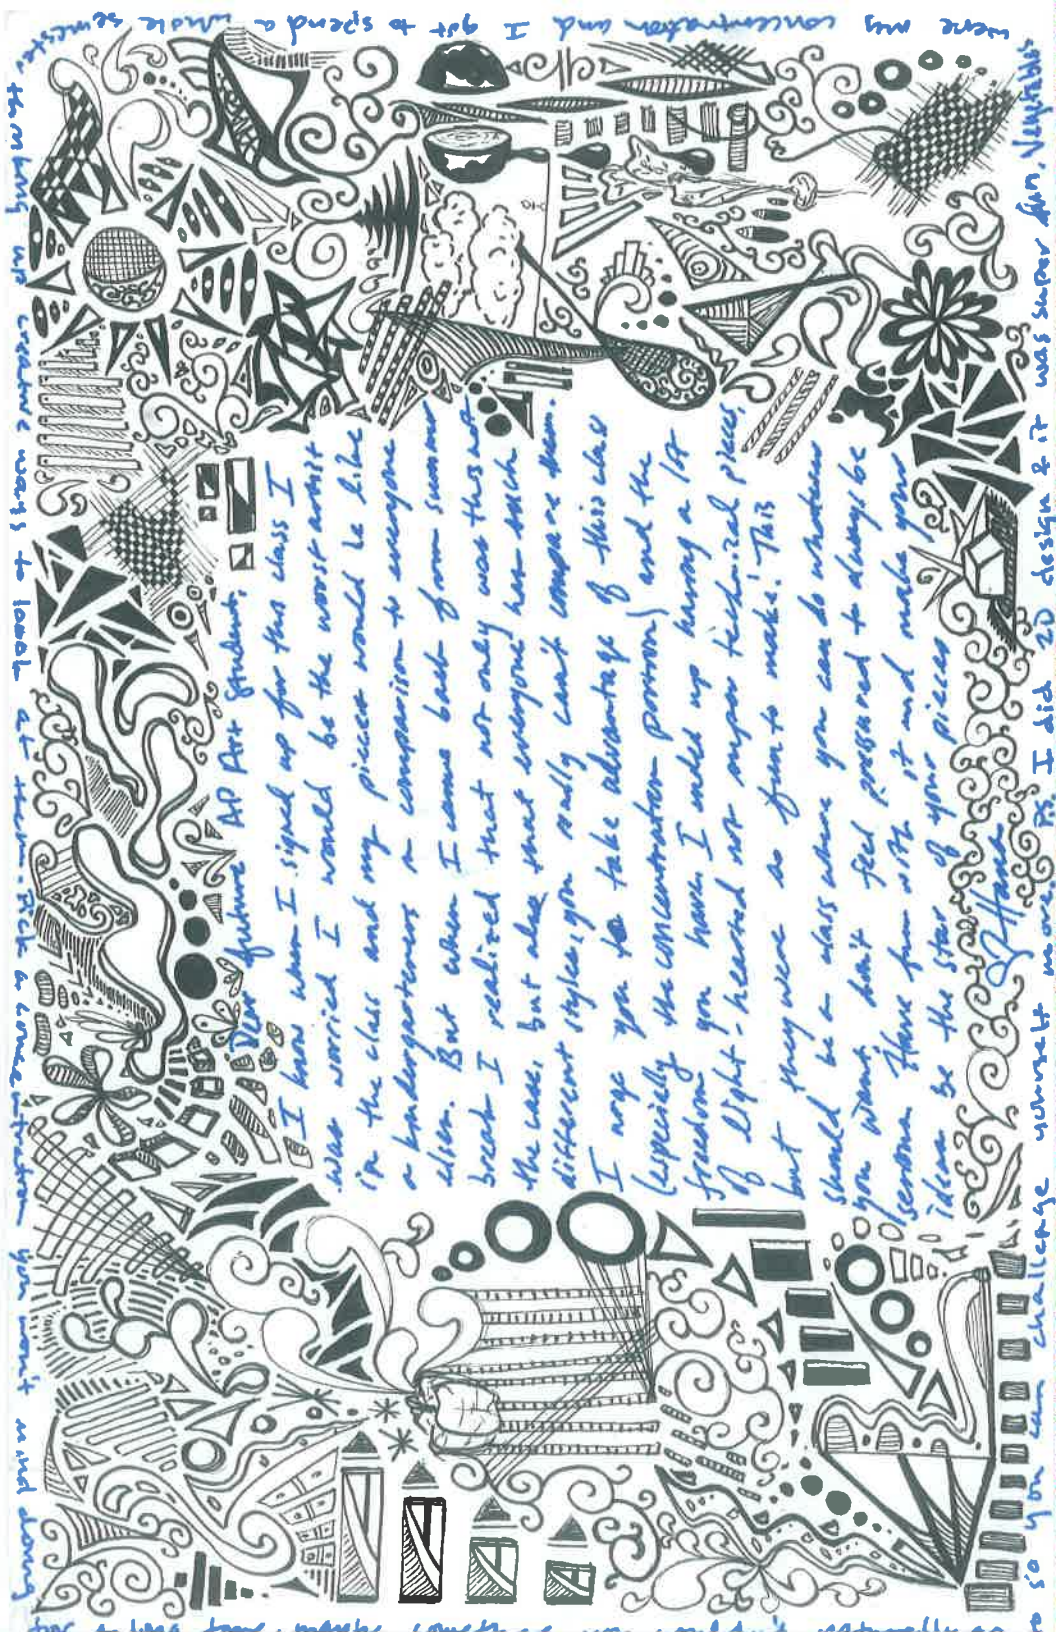 Dear future AP Art Student,
I know when I signed up for this class I
was worried I would be the worst artist
in the class and my pieces would be like
a kindergarteners in comparison to everyone
elses. But when I came back from summer
break I realized that not only was this not
the case, but also that everyone has such
different styles, you really can't compare them.
I urge you to take advantage of this class
(especially the concentration portion) and the
freedom you have. I ended up having a lot
of light-hearted not super technical pieces,
but they were so fun to make! This
should be a class where you can do whatever
you want, don't feel pressured to always be
serious. Have fun with it and make your
ideas be the star of your pieces
Hana
P.S. I did 2D design & it was super fun. Vegetables
were my concentration and I got to spend a whole semester
thinking up creative ways to look at them. Pick a concentration you won't mind doing
for a long time, maybe something you wouldn't naturally
so you can challenge yourself more.